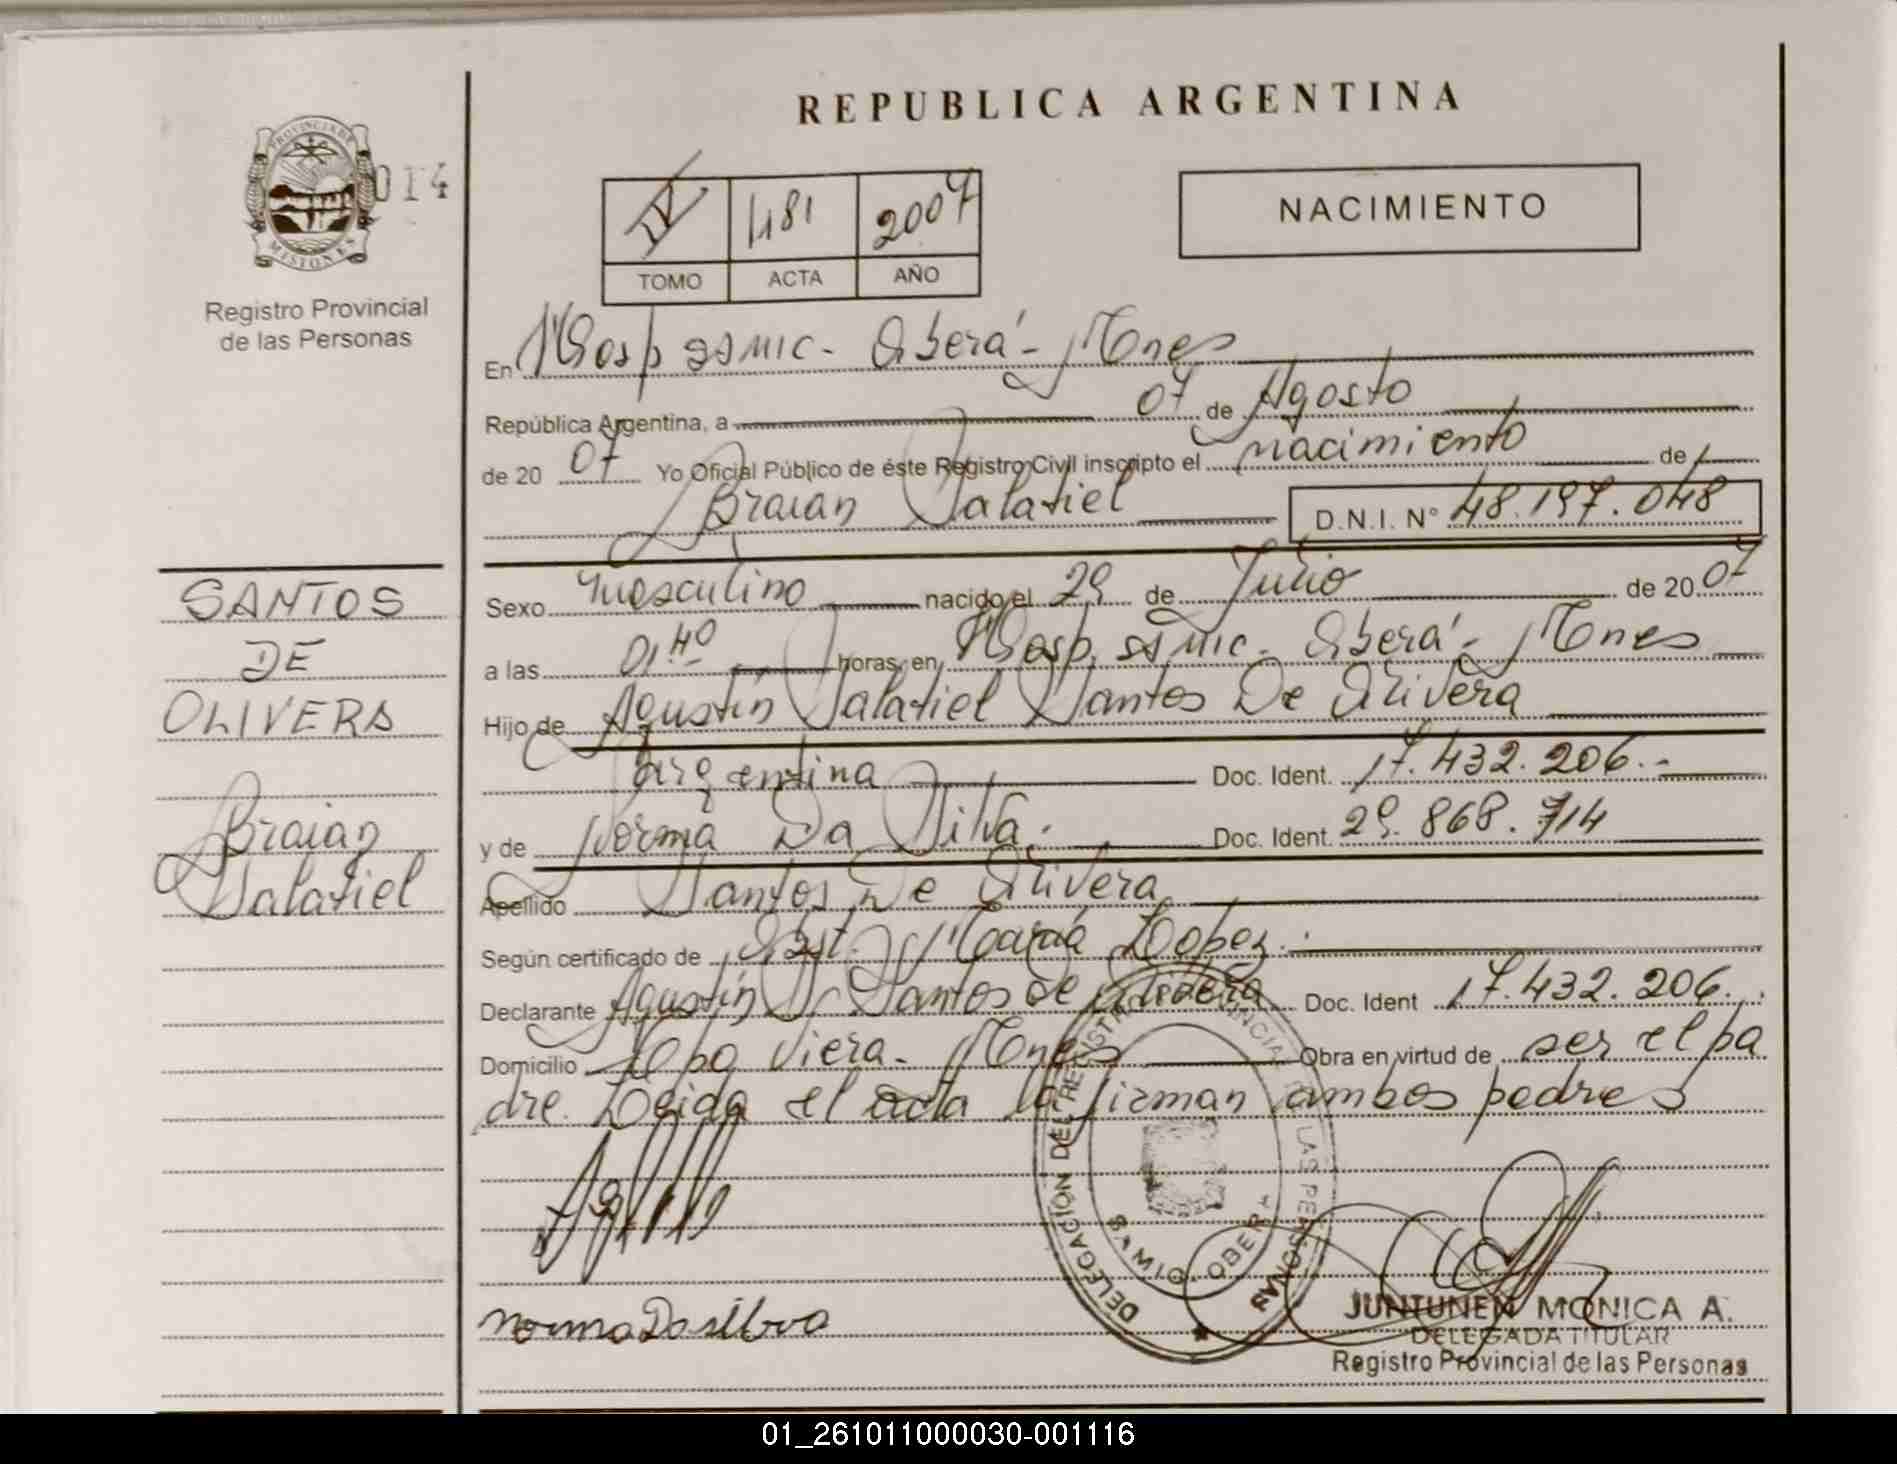 REPUBLICA ARGENTINA
PROVINCIA DE MISIONES
014
Registro Provincial
de las Personas
IV 1181 2007
TOMO ACTA AÑO
NACIMIENTO
En Hosp SAMIC - Oberá - Mnes
República Argentina, a 07 de Agosto
de 2007 Yo Oficial Público de éste Registro Civil inscripto el nacimiento de
Braian Salatiel D.N.I. N° 48.197.048
SANTOS
DE
OLIVERA
Braian
Salatiel
Sexo masculino nacido el 29 de Julio de 2007
a las 01.40 horas, en Hosp. SAMIC - Oberá - Mnes
Hijo de Agustín Salatiel Santos De Olivera
argentina Doc. Ident. 17.432.206.-
y de Norma Da Silva. Doc. Ident. 29.868.714
Apellido Santos De Olivera
Según certificado de Obst. María Lopez.
Declarante Agustín S. Santos de Olivera Doc. Ident 17.432.206.
Domicilio Cpo Viera - Mnes Obra en virtud de ser el pa
dre. Leida el acta la firman ambos padres
Norma Da silva
DELEGACIÓN DEL REGISTRO PROVINCIAL DE LAS PERSONAS
SAMIC - OBERA
JUNTUNEN MONICA A.
DELEGADA TITULAR
Registro Provincial de las Personas
01_261011000030-001116